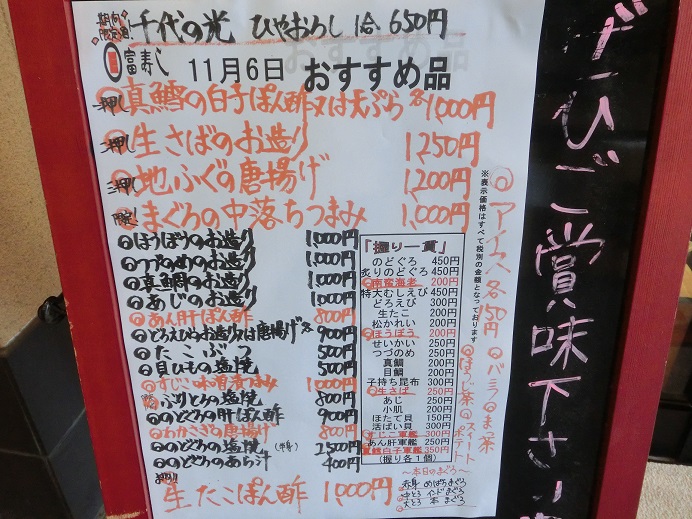 期間限定酒 千代の光 ひやおろし 1合 650円
富寿し 11月6日 おすすめ品
一押し 真鱈の白子ぽん酢又は天ぷら 各1,000円
二押し 生さばのお造り 1,250円
三押し 地ふぐの唐揚げ 1,200円
まぐろの中落ちつまみ 1,000円
ほうぼうのお造り 1,000円
つづめのお造り 1,000円
真鯛のお造り 1,000円
あじのお造り 1,000円
あん肝ぽん酢 800円
どろえびのお造り又は唐揚げ 各900円
たこぶつ 500円
貝ひもの塩焼 500円
すじこ味噌漬つまみ 1000円
ぶりとろの塩焼 800円
のどぐろの肝ぽん酢 900円
わかさぎの唐揚げ 800円
のどぐろの塩焼 (半身) 1,500円
のどぐろのあら汁 400円
生たこぽん酢 1,000円
「握り一貫」
のどぐろ 450円
炙りのどぐろ 450円
南蛮海老 200円
特大むしえび 450円
どろえび 300円
生たこ 200円
松かれい 200円
ほうぼう 200円
せいかい 250円
つづのめ 250円
真鯛 200円
目鯛 200円
子持ち昆布 300円
生さば 250円
あじ 250円
小肌 200円
ほたて貝 150円
活ばい貝 300円
すじこ軍艦 300円
あん肝軍艦 250円
真鱈白子軍艦 350円
(握り各1個)
〜本日のまぐろ〜
赤身 めばちまぐろ
中とろ インドまぐろ
大とろ 本まぐろ
※表示価格はすべて税別の金額となっております
アイス各150円
バニラ
まっ茶
ほうじ茶
スイートポテト
ぜひご賞味下さい